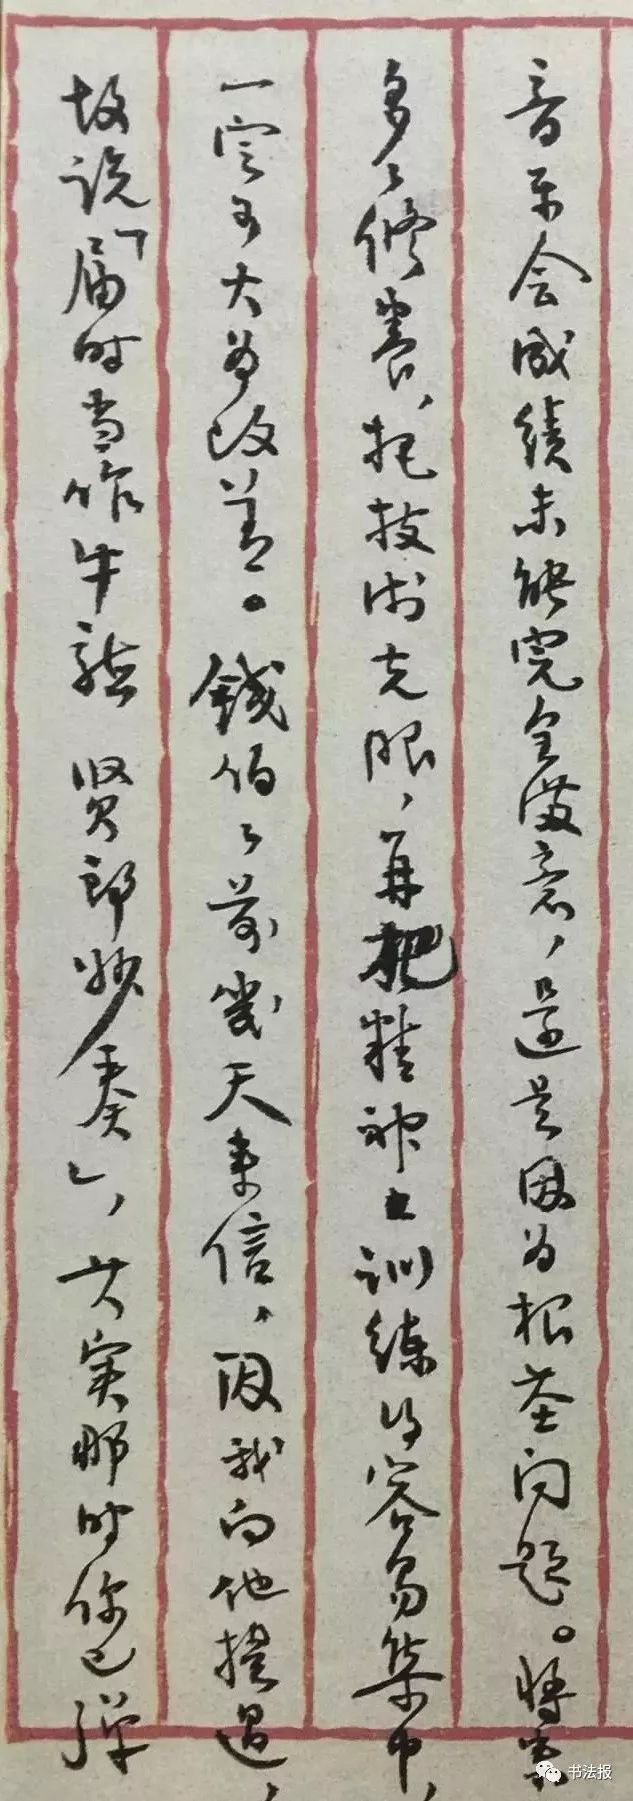 音乐会成绩未能完全满意，还是因为根基问题。将来
多多修养，把技术克服，再把精神上训练得容易集中，
一定可大为改善。钱伯伯前几天来信，因我向他提过，
故说「届时当作牛听贤郎妙奏」，其实那时你已弹
书法报